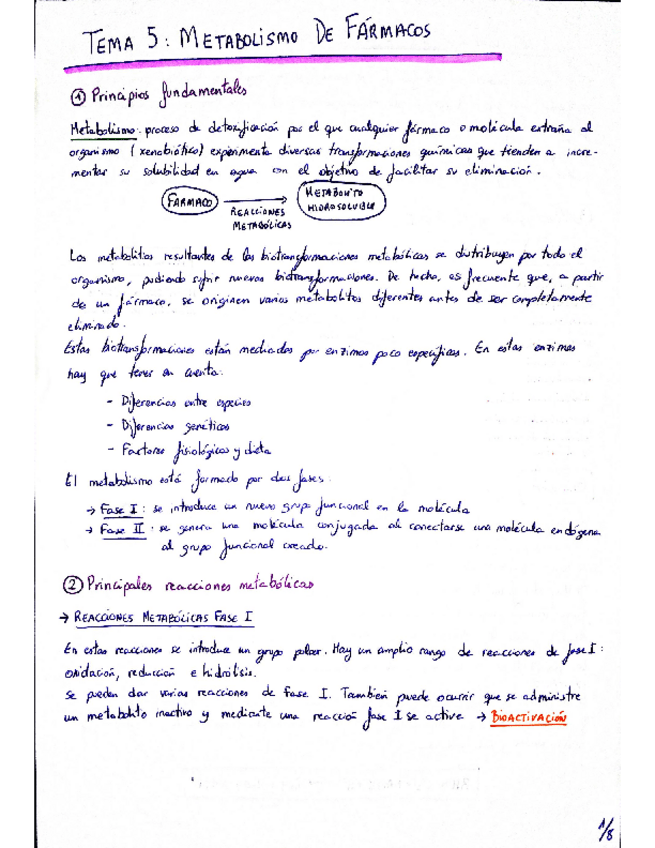 TEMA 5: METABOLISMO DE FÁRMACOS
① Principios fundamentales
Metabolismo: proceso de detoxificación por el que cualquier fármaco o molécula extraña al
organismo (xenobiótico) experimenta diversas transformaciones químicas que tienden a incre-
mentar su solubilidad en agua con el objetivo de facilitar su eliminación.
FÁRMACO → METABOLITO HIDROSOLUBLE
REACCIONES METABÓLICAS
Los metabolitos resultantes de las biotransformaciones metabólicas se distribuyen por todo el
organismo, pudiendo sufrir nuevas biotransformaciones. De hecho, es frecuente que, a partir
de un fármaco, se originen varios metabolitos diferentes antes de ser completamente
eliminado.
Estas biotransformaciones están mediadas por enzimas poco específicas. En estas enzimas
hay que tener en cuenta:
- Diferencias entre especies
- Diferencias genéticas
- Factores fisiológicos y dieta
El metabolismo está formado por dos fases:
→ Fase I: se introduce un nuevo grupo funcional en la molécula
→ Fase II: se genera una molécula conjugada al conectarse una molécula endógena
al grupo funcional creado.
② Principales reacciones metabólicas
→ REACCIONES METABÓLICAS FASE I
En estas reacciones se introduce un grupo polar. Hay un amplio rango de reacciones de fase I:
oxidación, reducción e hidrólisis.
Se pueden dar varias reacciones de Fase I. También puede ocurrir que se administre
un metabolito inactivo y mediante una reacción fase I se active → BIOACTIVACIÓN
1/8